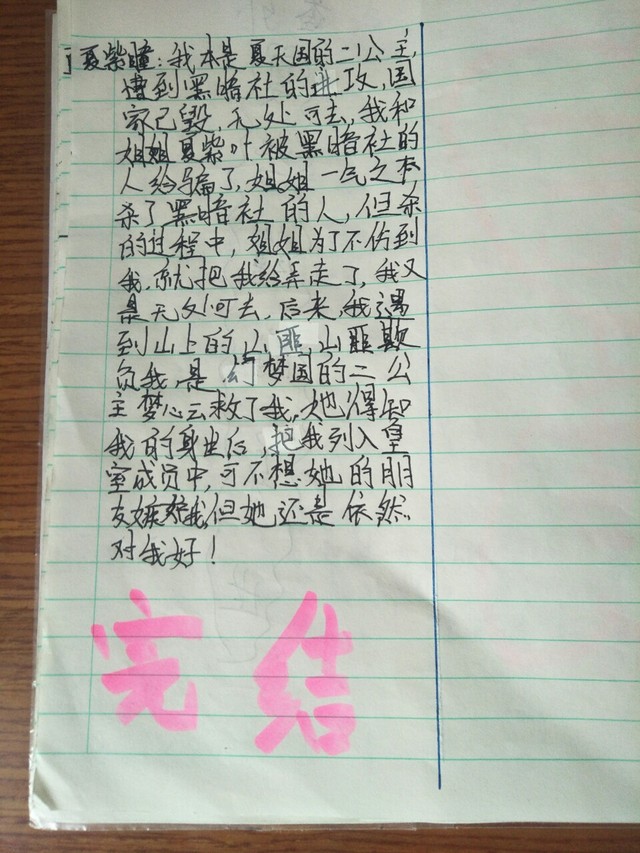 夏紫瞳：我本是夏天国的二公主，
遭到黑暗社的进攻，国
家已毁，无处可去，我和
姐姐夏紫叶被黑暗社的
人给骗了，姐姐一气之下
杀了黑暗社的人，但杀
的过程中，姐姐为了不伤到
我，就把我给弄走了，我又
是无处可去，后来，我遇
到山上的山匪，山匪欺
负我，是幻梦国的二公
主梦心云救了我，她得知
我的身世后，把我列入皇
室成员中，可不想她的朋
友嫉妒我，但她还是依然
对我好！
完结